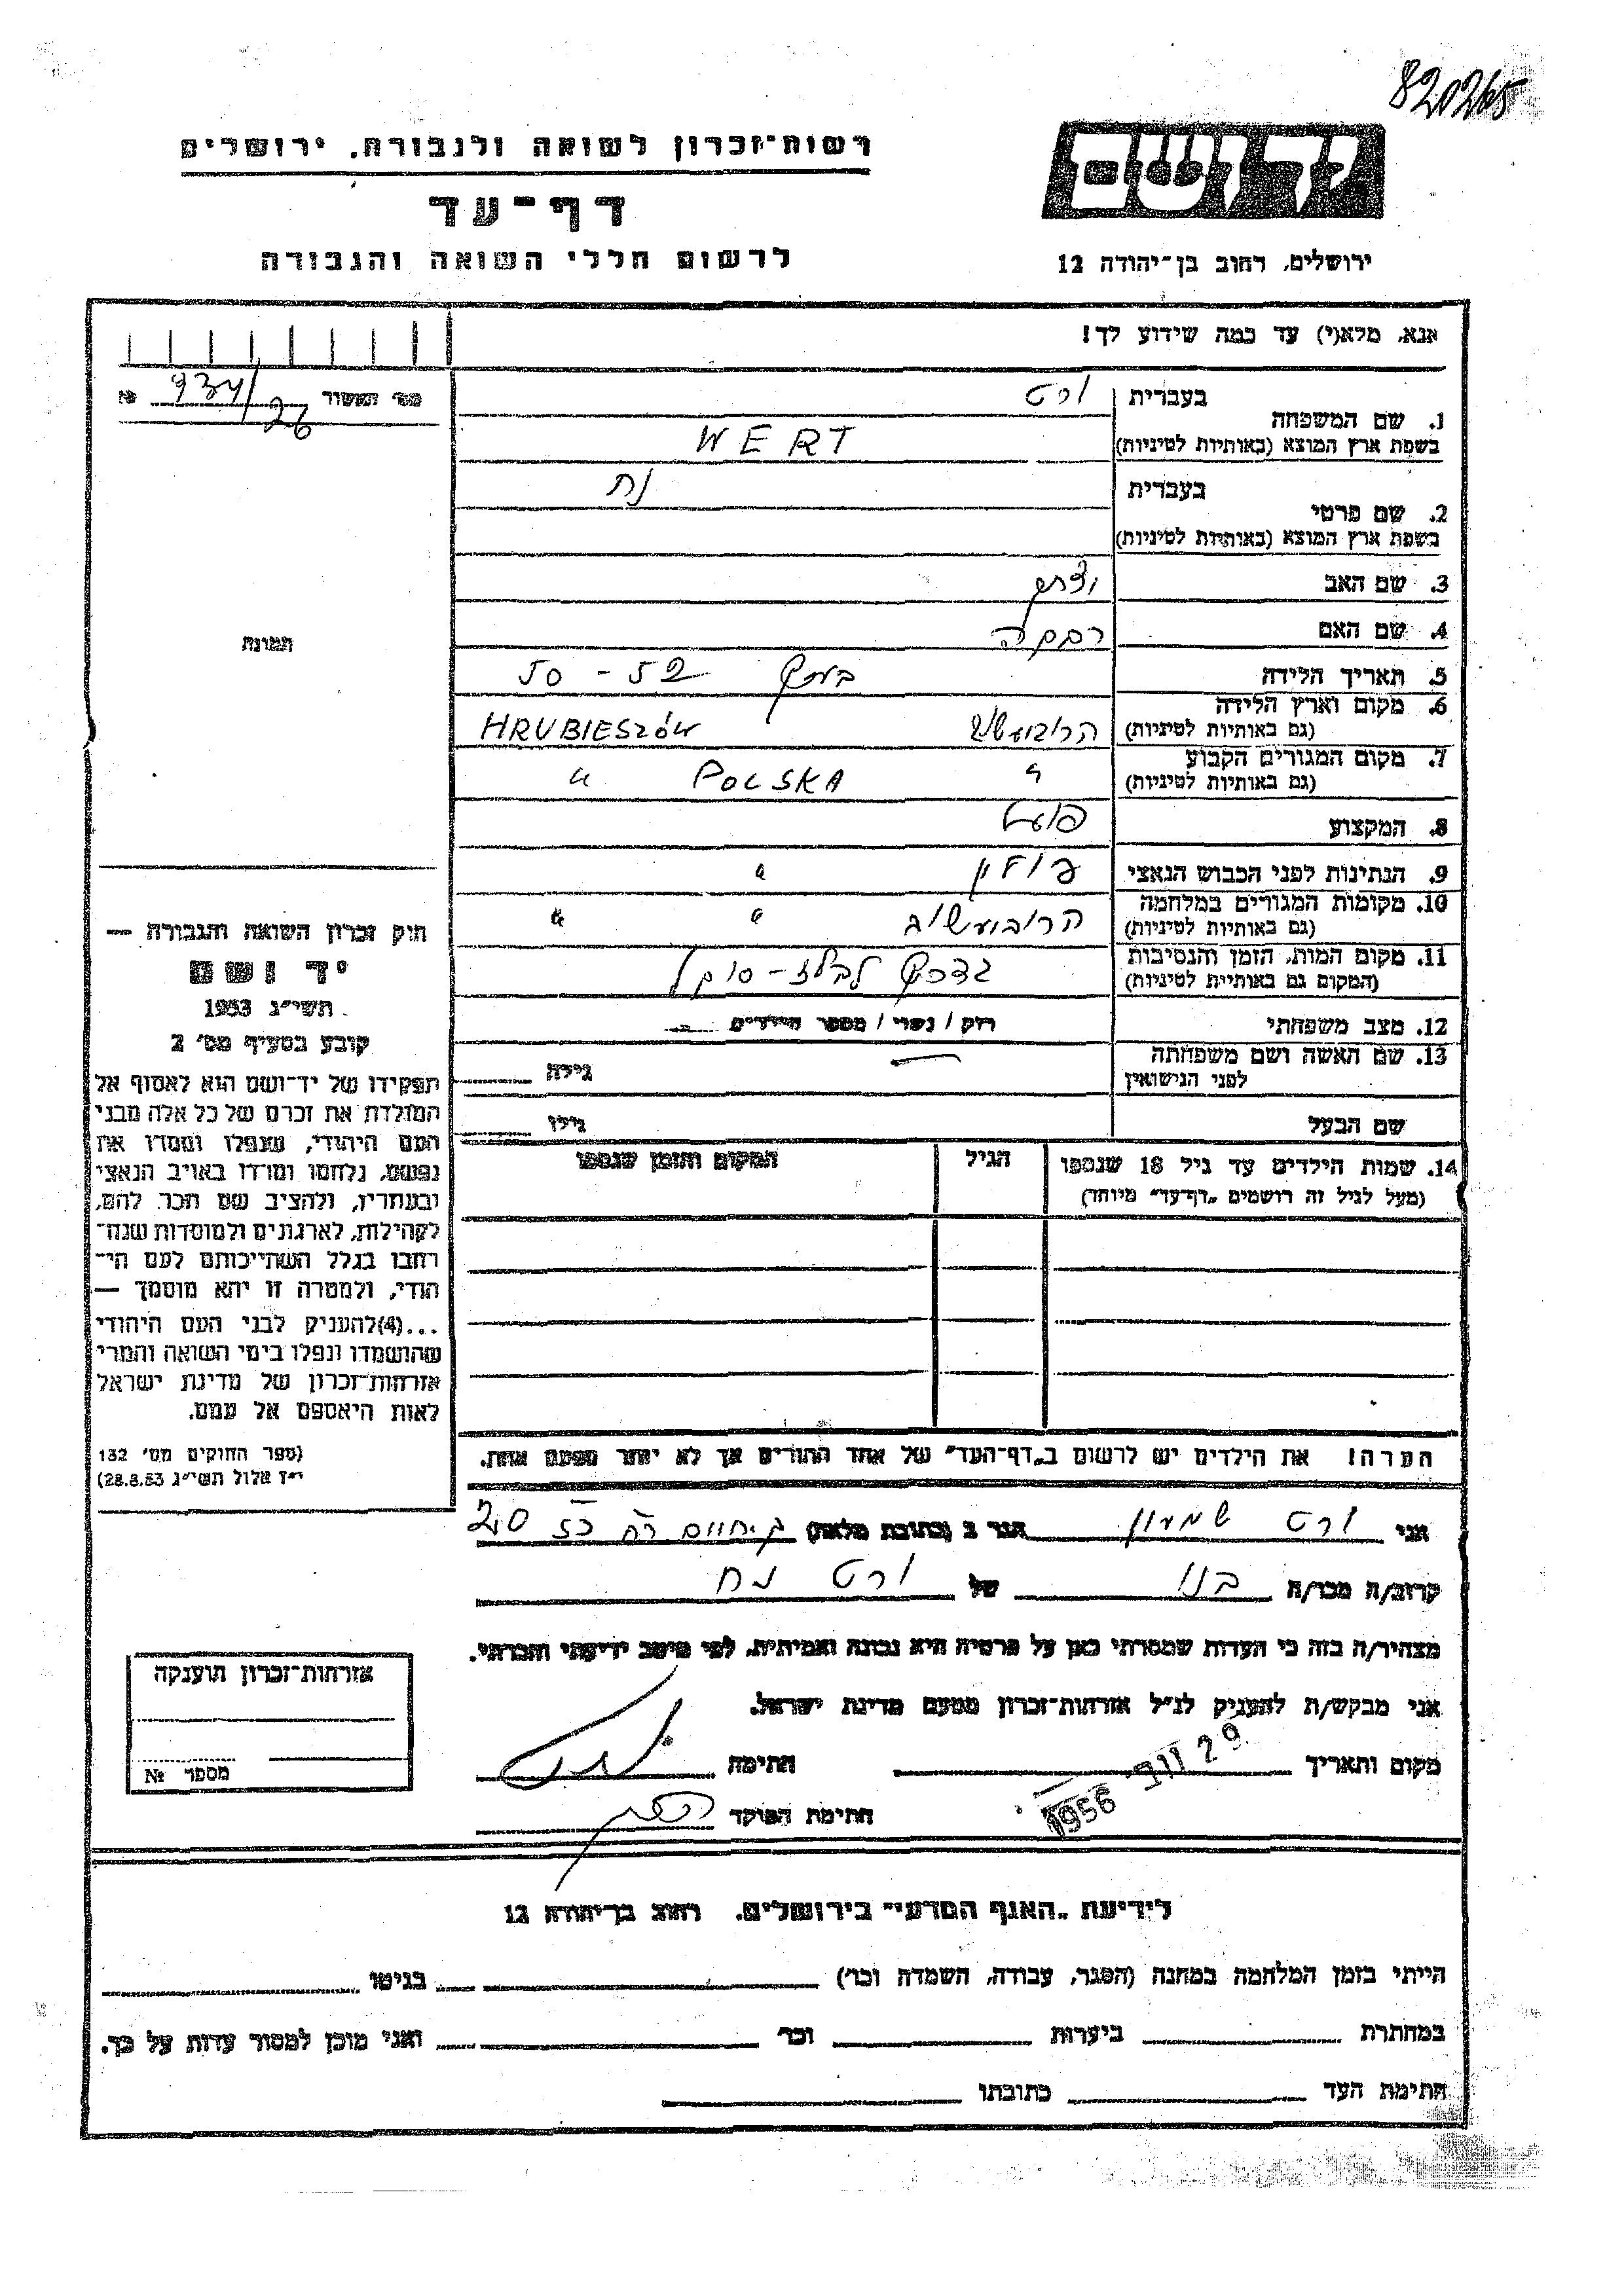 820265
יד ושם
ירושלים, רחוב בן־יהודה 12
רשות־זכרון לשואה ולגבורה, ירושלים
דף־עד
לרשום חללי השואה והגבורה
אנא, מלא(י) עד כמה שידוע לך!
מס׳ תאשור 934/26 №
1. שם המשפחה בעברית ורט
בשפת ארץ המוצא (באותיות לטיניות) WERT
2. שם פרטי בעברית נח
בשפת ארץ המוצא (באותיות לטיניות)
3. שם האב
4. שם האם רבקה
5. תאריך הלידה 50 - 52
6. מקום וארץ הלידה
(גם באותיות לטיניות) הרובישוב HRUBIESZÓW
7. מקום המגורים הקבוע
(גם באותיות לטיניות) " POLSKA "
8. המקצוע פועל
9. הנתינות לפני הכבוש הנאצי פולין "
10. מקומות המגורים במלחמה
(גם באותיות לטיניות) הרובישוב " "
11. מקום המות, הזמן והנסיבות
(המקום גם באותיות לטיניות) בדרך לבלז - סוקל
12. מצב משפחתי רוק / נשוי / מספר הילדים
13. שם האשה ושם משפחתה
לפני הנישואין גילה
שם הבעל גילו
14. שמות הילדים עד גיל 18 שנספו הגיל המקום והזמן שנספו
(מעל לגיל זה רושמים „דף־עד״ מיוחד)
הערה! את הילדים יש לרשום ב„דף־העד״ של אחד ההורים אך לא יותר מפעם אחת.
תמונה
חוק זכרון השואה והגבורה —
יד ושם
תשי״ג 1953
קובע בסעיף מס׳ 2
תפקידו של יד־ושם הוא לאסוף אל
המולדת את זכרם של כל אלה מבני
העם היהודי, שנפלו ומסרו את
נפשם, נלחמו ומרדו באויב הנאצי
ובעוזריו, ולהציב שם וזכר להם,
לקהילות, לארגונים ולמוסדות שנח־
רבו בגלל השתייכותם לעם הי־
הודי, ולמטרה זו יהא מוסמך —
...(4)להעניק לבני העם היהודי
שהושמדו ונפלו בימי השואה והמרי
אזרחות־זכרון של מדינת ישראל
לאות היאספם אל עמם.
(ספר החוקים מס׳ 132
י״ז אלול תשי״ג 28.8.53)
אני ורט שמעון הגר ב (כתובת מלאה) ק. חיים רח כז 20
קרוב/ה מכר/ה בנו של ורט נח
מצהיר/ה בזה כי העדות שמסרתי כאן על פרטיה היא נכונה ואמיתית, לפי מיטב ידיעתי והכרתי.
אני מבקש/ת להעניק לנ״ל אזרחות־זכרון מטעם מדינת ישראל.
מקום ותאריך 29 1956 חתימה
חתימת הפוקד
אזרחות־זכרון תוענקה
מספר №
לידיעת „האגף המדעי״ בירושלים, רחוב בן־יהודה 12
הייתי בזמן המלחמה במחנה (הסגר, עבודה, השמדה וכו׳) בגיטו
במחתרת ביערות וכו׳ ואני מוכן למסור עדות על כך.
חתימת העד כתובתו